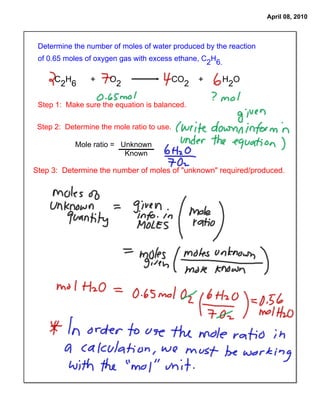 April 08, 2010
Determine the number of moles of water produced by the reaction
of 0.65 moles of oxygen gas with excess ethane, C2H6.
2 C2H6 + 7 O2 → 4 CO2 + 6 H2O
0.65mol ? mol
Step 1: Make sure the equation is balanced.
given
Step 2: Determine the mole ratio to use. (write down inform'n
under the equation)
Mole ratio = Unknown 6H2O
Known 7O2
Step 3: Determine the number of moles of "unknown" required/produced.
moles of
unknown
quantity = given
info. in
MOLES (mole
ratio)
= moles
given (moles unknown
mole known)
mol H2O = 0.65 mol O2 (6 H2O
7 O2) = 0.56
mol H2O
* In order to use the mole ratio in
a calculation, we must be working
with the "mol" unit.